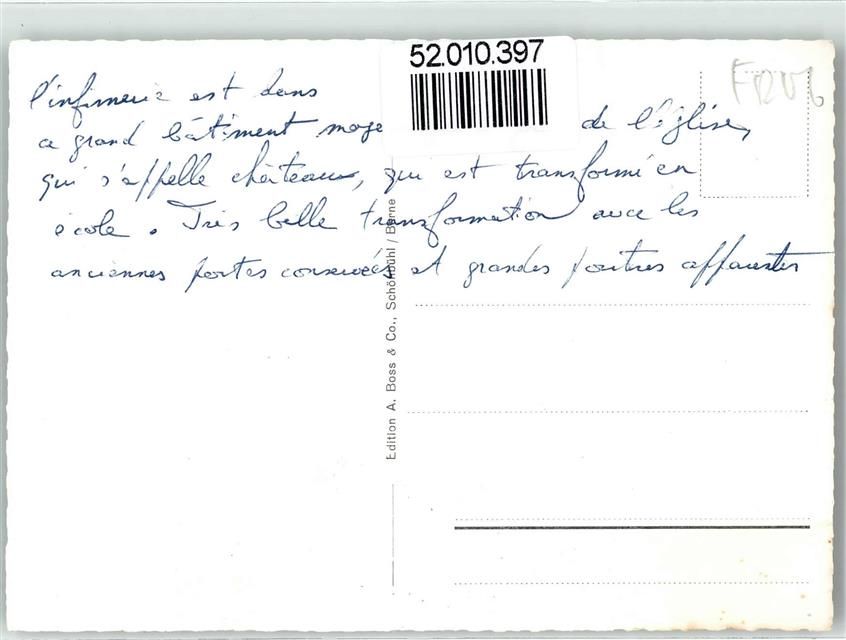 52.010.397
l'infirmerie est dans
ce grand bâtiment moye de l'église,
qui s'appelle château, qui est transformé en
école. Très belle transformation avec les
anciennes portes conservées et grandes poutres apparentes
Edition A. Boss & Co., Schönbühl / Berne